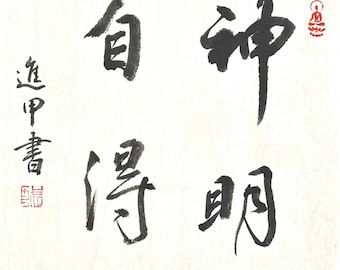 神明
自得
進甲書